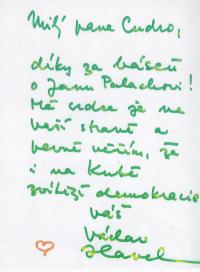 Milý pane Cudro,
díky za báseň
o Janu Palachovi!
Mé srdce je na
vaší straně a
pevně věřím, že
i na Kubě
zvítězí demokracie
váš
Václav
Havel